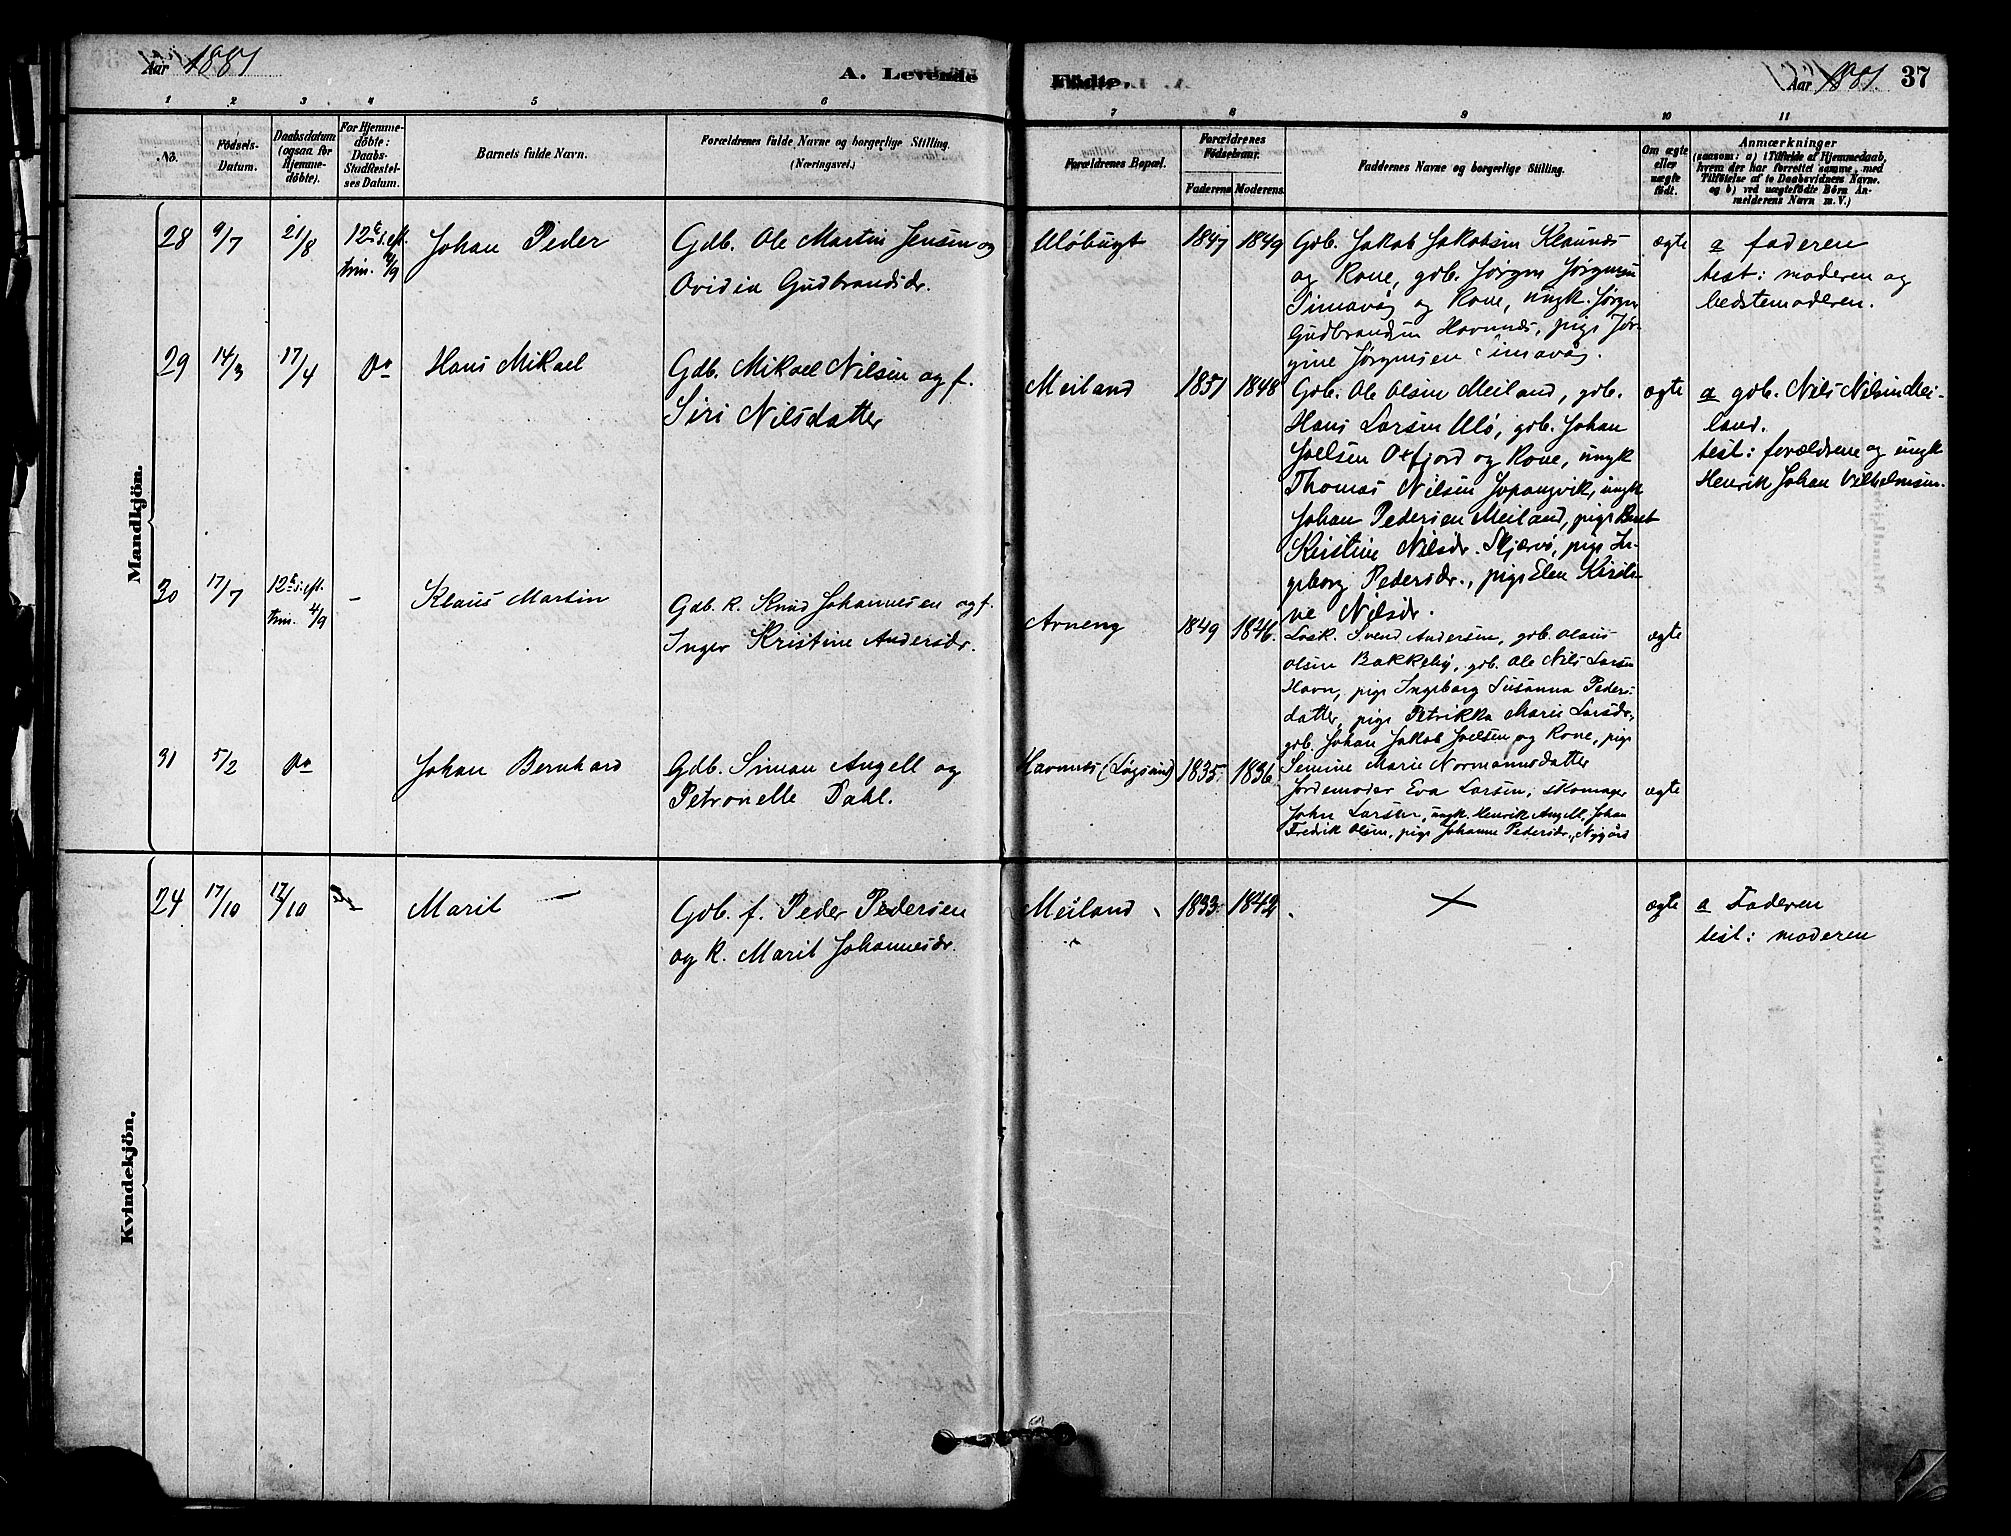 Aar 1881
A. Levende
Fødte.
Aar 1881.
37
1 2 3 4 5 6 7 8 9 10 11
No.
Fødsels-
Datum.
Daabsdatum
(ogsaa for
Hjemme-
døbte).
For Hjemme-
døbte:
Daabs-
Stadfæstel-
ses Datum.
Barnets fulde Navn.
Forældrenes fulde Navne og borgerlige Stilling.
(Næringsvei.)
Forældrenes Bopæl.
Forældrenes
Fødselsaar.
Faderens
Moderens
Faddernes Navne og borgerlige Stilling.
Om ægte
eller
uægte
født.
Anmærkninger
(saasom: a) i Tilfælde af Hjemmedaab,
hvem der har forrettet samme, med
Tilføielse af to Daabsvidners Navne.
og b) ved uægtefødte Børn An-
melderens Navn m. V.)
Mandkjön.
28
9/7
21/8
12te s. eft.
trin. 4/9
Johan Peder
Gdb. Ole Martin Jensen og
Ovidia Gudbrandsdr.
Uløbugt
1847
1849
Gdb. Jakob Jakobsen Klaunes
og Kone, gdb. Jørgen Jørgensen
Timavåg og Kone, ungk. Jørgen
Gudbrandsen Havnnes, pige Jør-
gine Jørgensen Timavåg.
ægte
a faderen
test: moderen og
bedstemoderen.
29
14/3
17/4
Do
Hans Mikael
Gdb. Mikael Nilsen og f.
Siri Nilsdatter
Meiland
1851
1848
Gdb. Ole Olsen Meiland, gdb.
Hans Larsen Ulø, gdb. Johan
Joelsen Oxfjord og Kone, ungk
Thomas Nilsen Spangvik, ungk
Johan Pedersen Meiland, pige Beret
Kirstine Nilsdr. Skjærvø, pige In-
geborg Pedersdr., pige Elen Kirsti-
ne Nilsdr.
ægte
a gdb. Nils Nilsen Mei-
land.
test: forældrene og ungk
Henrik Johan Vilhelmsen.
30
17/7
12te s. eft.
trin. 4/9
-
Klaus Martin
Gdb. k. Knud Johannesen og f.
Inger Kristine Andersdr.
Arneng
1849
1846.
Losk. Svend Andersen, gdb. Olaus
Olsen Bakkeby, gdb. Ole Nils Larsen
Havn, pige Ingeborg Susanna Peders-
datter, pige Petrikka Marie Larsdr.,
gdb. Johan Jakob Joelsen og Kone, pige
Semine Marie Normannsdatter
ægte
31
5/2
Do
Johan Bernhard
Gdb. Simon Angell og
Petronelle Dahl.
Havnnes (Løgsund)
1835.
1836
Jordemoder Eva Larsen, skomager
John Larsen, ungk. Henrik Angell, Johan
Fredrik Olsen, pige Johanne Pedersdr., Nygård
ægte
Kvindekjön.
24
17/10
17/10
Marit -
Gdb. f. Peder Pedersen
og k. Marit Johannesdr.
Meiland
1833.
1842
×
ægte
a Faderen
test: moderen